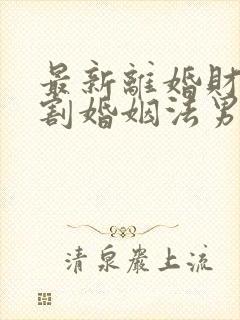 最新離婚財
割婚姻法男
清泉巖上流